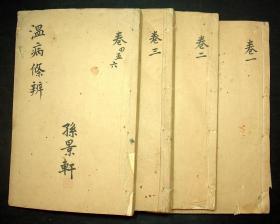 卷一
卷二
卷三
卷四五六
溫病條辨
孫景軒